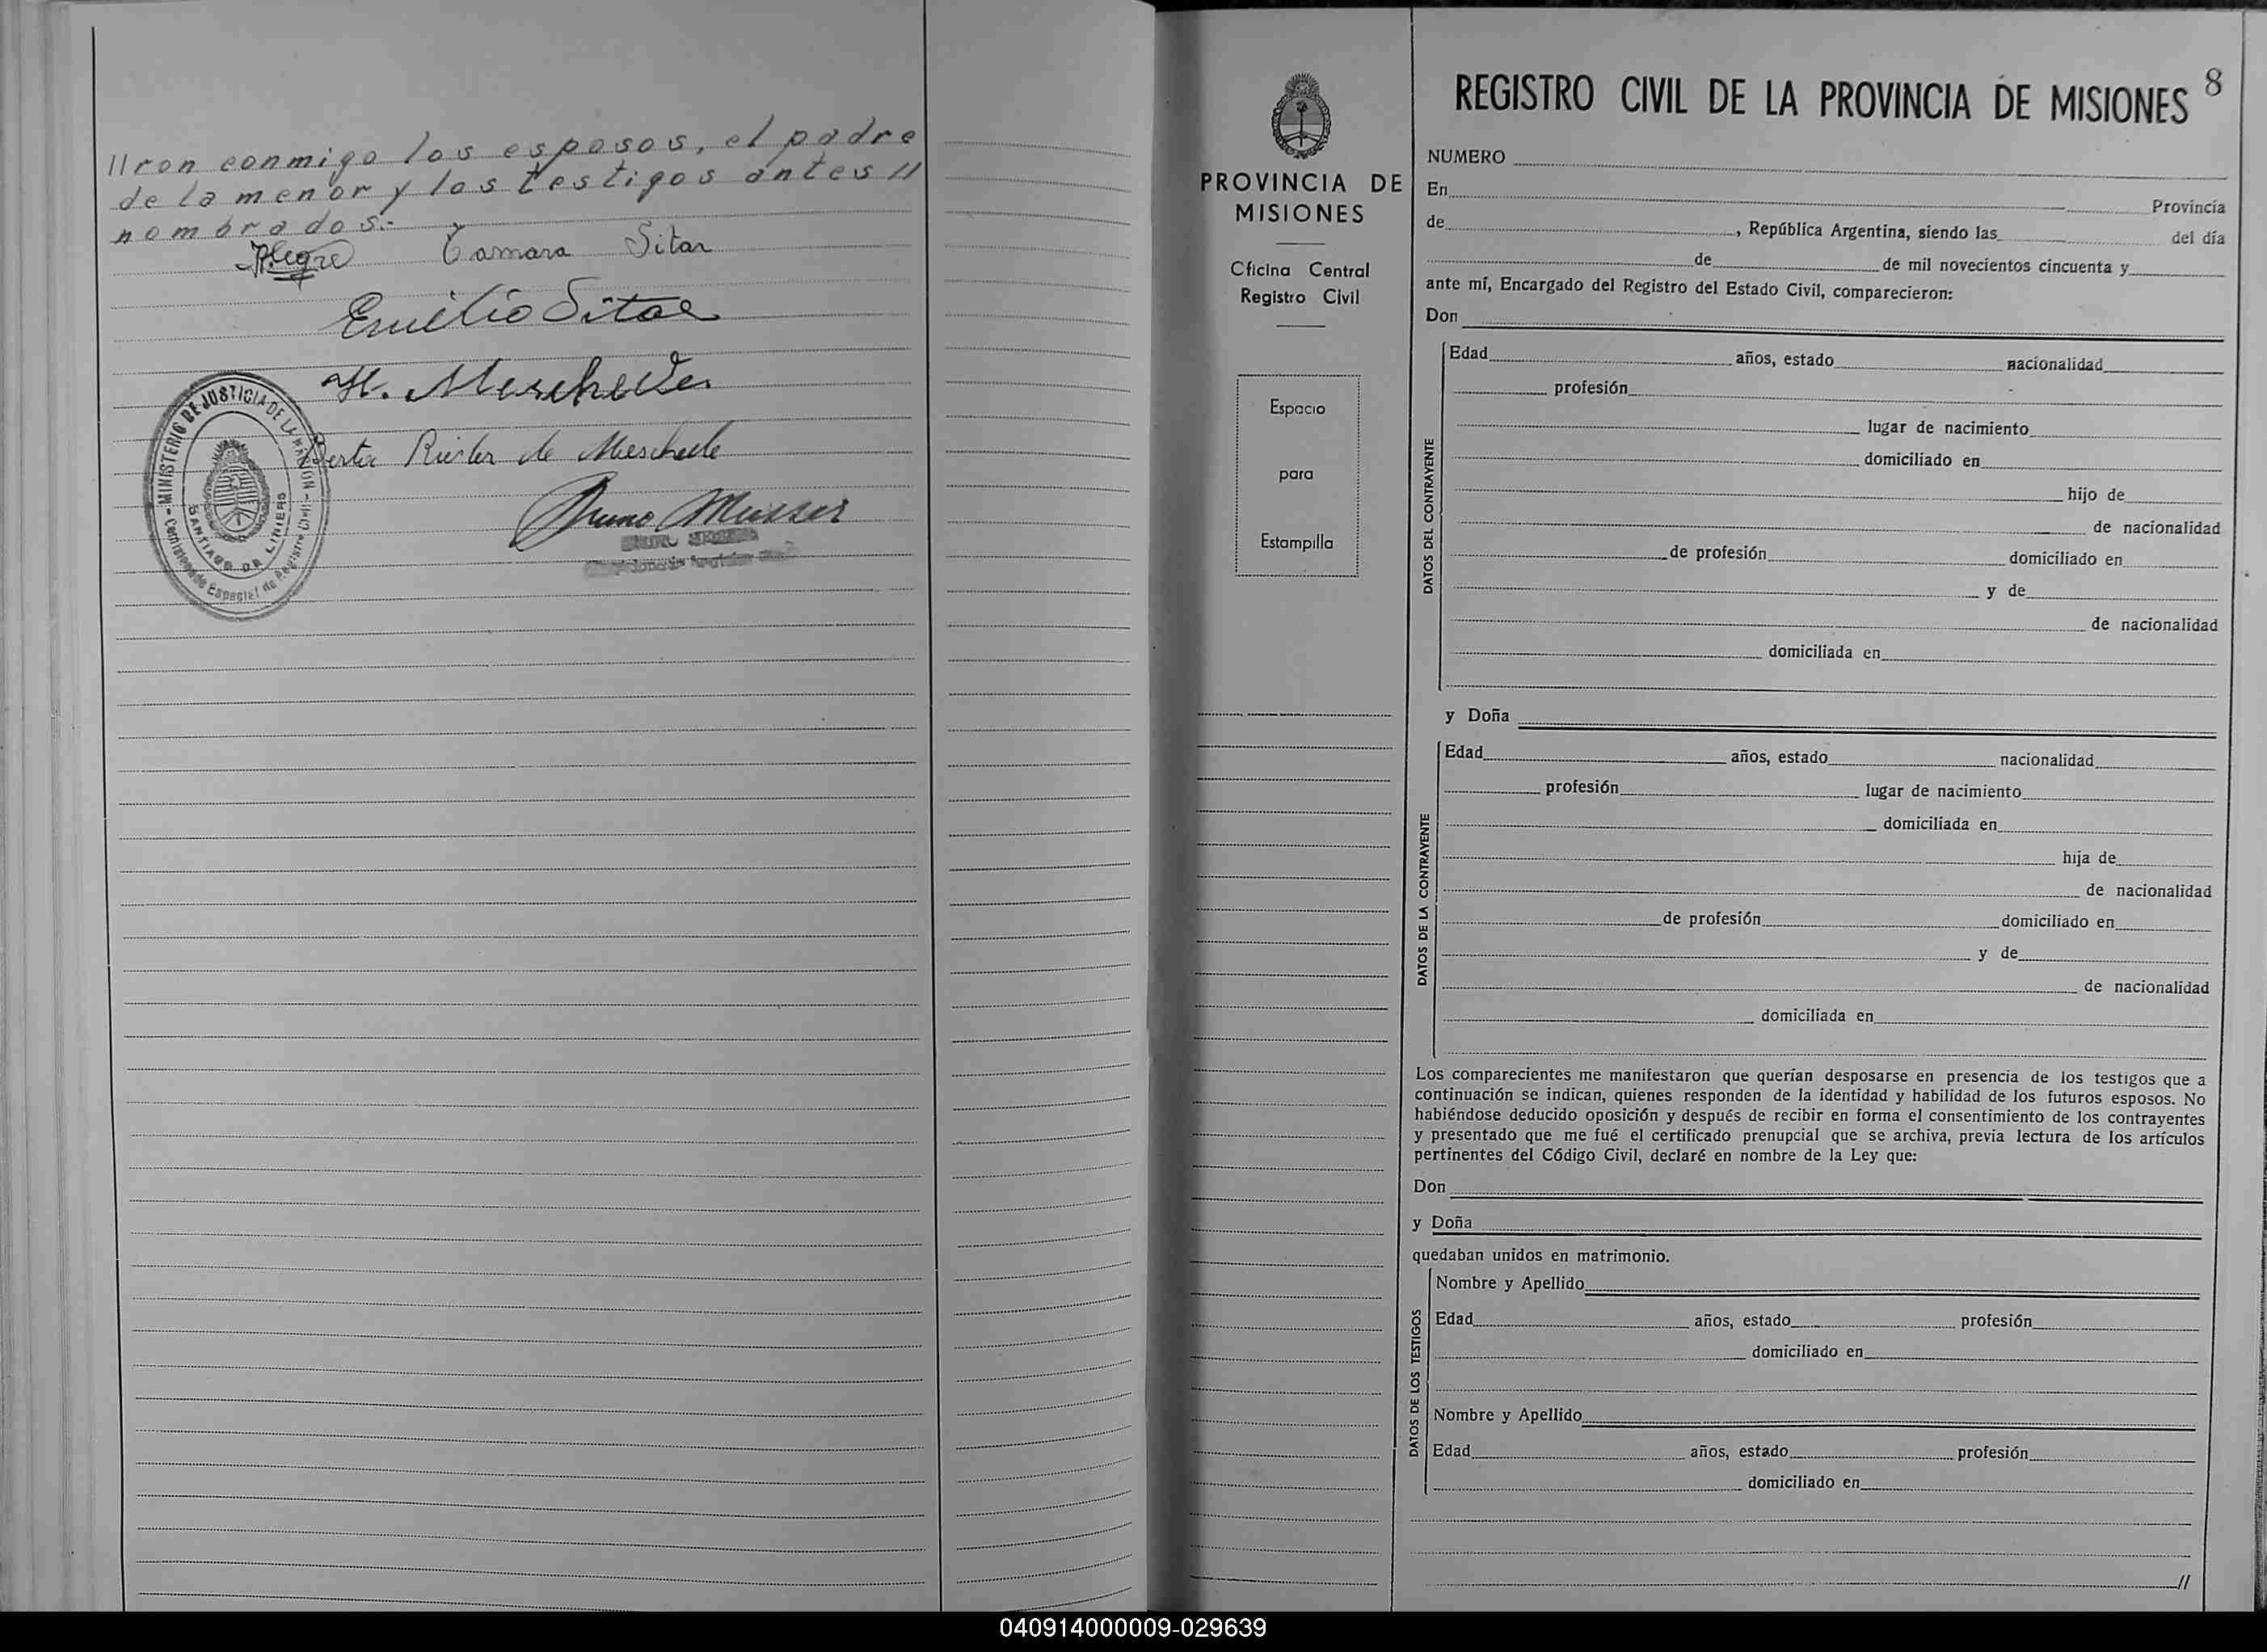 //ron conmigo los esposos, el padre
de la menor y los testigos antes //
nombrados:-
Alegre Tamara Sitar
Emilio Sitar
H. Meschede
Berta Rister de Meschede
Bruno Musser
MINISTERIO DE JUSTICIA DE LA NACION
SANTIAGO DE LINIERS
Comisionado Especial de Registro Civil
PROVINCIA DE
MISIONES
Oficina Central
Registro Civil
Espacio
para
Estampilla
REGISTRO CIVIL DE LA PROVINCIA DE MISIONES 8
NUMERO
En Provincia
de , República Argentina, siendo las del día
de de mil novecientos cincuenta y
ante mí, Encargado del Registro del Estado Civil, comparecieron:
Don
DATOS DEL CONTRAYENTE
Edad años, estado nacionalidad
profesión
lugar de nacimiento
domiciliado en
hijo de
de nacionalidad
de profesión domiciliado en
y de
de nacionalidad
domiciliada en
y Doña
DATOS DE LA CONTRAYENTE
Edad años, estado nacionalidad
profesión lugar de nacimiento
domiciliada en
hija de
de nacionalidad
de profesión domiciliado en
y de
de nacionalidad
domiciliada en
Los comparecientes me manifestaron que querían desposarse en presencia de los testigos que a
continuación se indican, quienes responden de la identidad y habilidad de los futuros esposos. No
habiéndose deducido oposición y después de recibir en forma el consentimiento de los contrayentes
y presentado que me fué el certificado prenupcial que se archiva, previa lectura de los artículos
pertinentes del Código Civil, declaré en nombre de la Ley que:
Don
y Doña
quedaban unidos en matrimonio.
DATOS DE LOS TESTIGOS
Nombre y Apellido
Edad años, estado profesión
domiciliado en
Nombre y Apellido
Edad años, estado profesión
domiciliado en
//
040914000009-029639